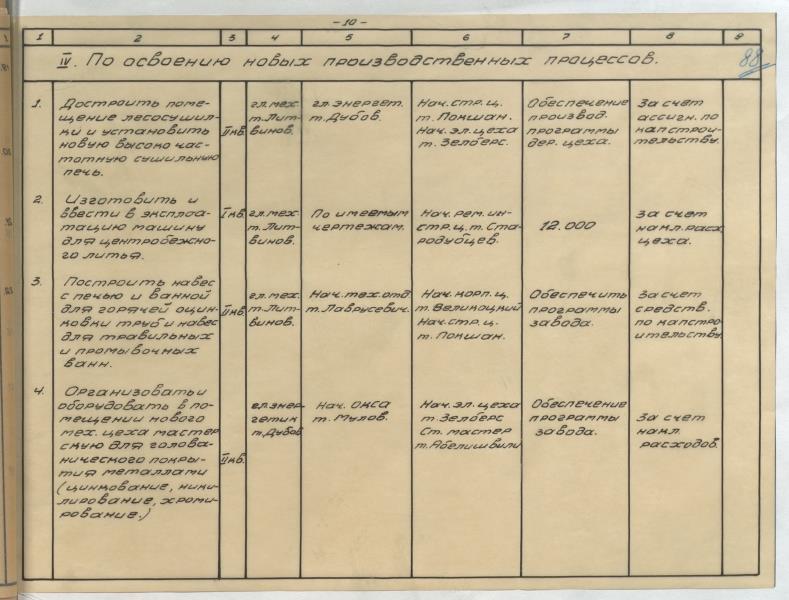 -10-
1 2 3 4 5 6 7 8 9
88
IV. По освоению новых производственных процессов.
1. Достроить поме-
щение лесосушил-
ки и установить
новую высоко час-
тотную сушильную
печь.
II кв.
гл. мех.
т. Лит-
винов.
гл. энергет.
т. Дубов.
Нач. стр. ц.
т. Покшан.
Нач. эл. цеха
т. Зелберс.
Обеспечение
производ.
программы
дер. цеха.
За счет
ассигн. по
капстрои-
тельству.
2. Изготовить и
ввести в эксплоа-
тацию машину
для центробежно-
го литья.
I кв.
гл. мех.
т. Лит-
винов.
По имеемым
чертежам.
Нач. рем. ин-
стр. ц. т. Ста-
родубцев.
12.000
За счет
накл. расх.
цеха.
3. Построить навес
с печью и ванной
для горячей оцин-
ковки труб и навес
для травильных
и промывочных
ванн.
II кв.
гл. мех.
т. Лит-
винов.
Нач. тех. отд.
т. Лаврусевич.
Нач. корп. ц.
т. Великоцкий
Нач. стр. ц.
т. Покшан.
Обеспечить
программы
завода.
За счет
средств.
по капстро-
ительству.
4. Организовать и
оборудовать в по-
мещении нового
мех. цеха мастер
скую для голова-
нического покры-
тия металлами
(цинкование, ники-
лирование, хроми-
рование.)
II кв.
гл. энер-
гетик
т. Дубов
Нач. окса
т. Мулов.
Нач. эл. цеха
т. Зелберс
Ст. мастер
т. Абелишвили
Обеспечение
программы
завода.
За счет
накл.
расходов.